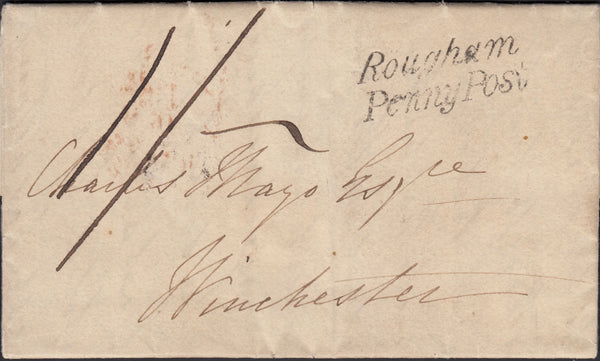 Rougham
Penny Post
1/
Charles Mayo Esqre
Winchester